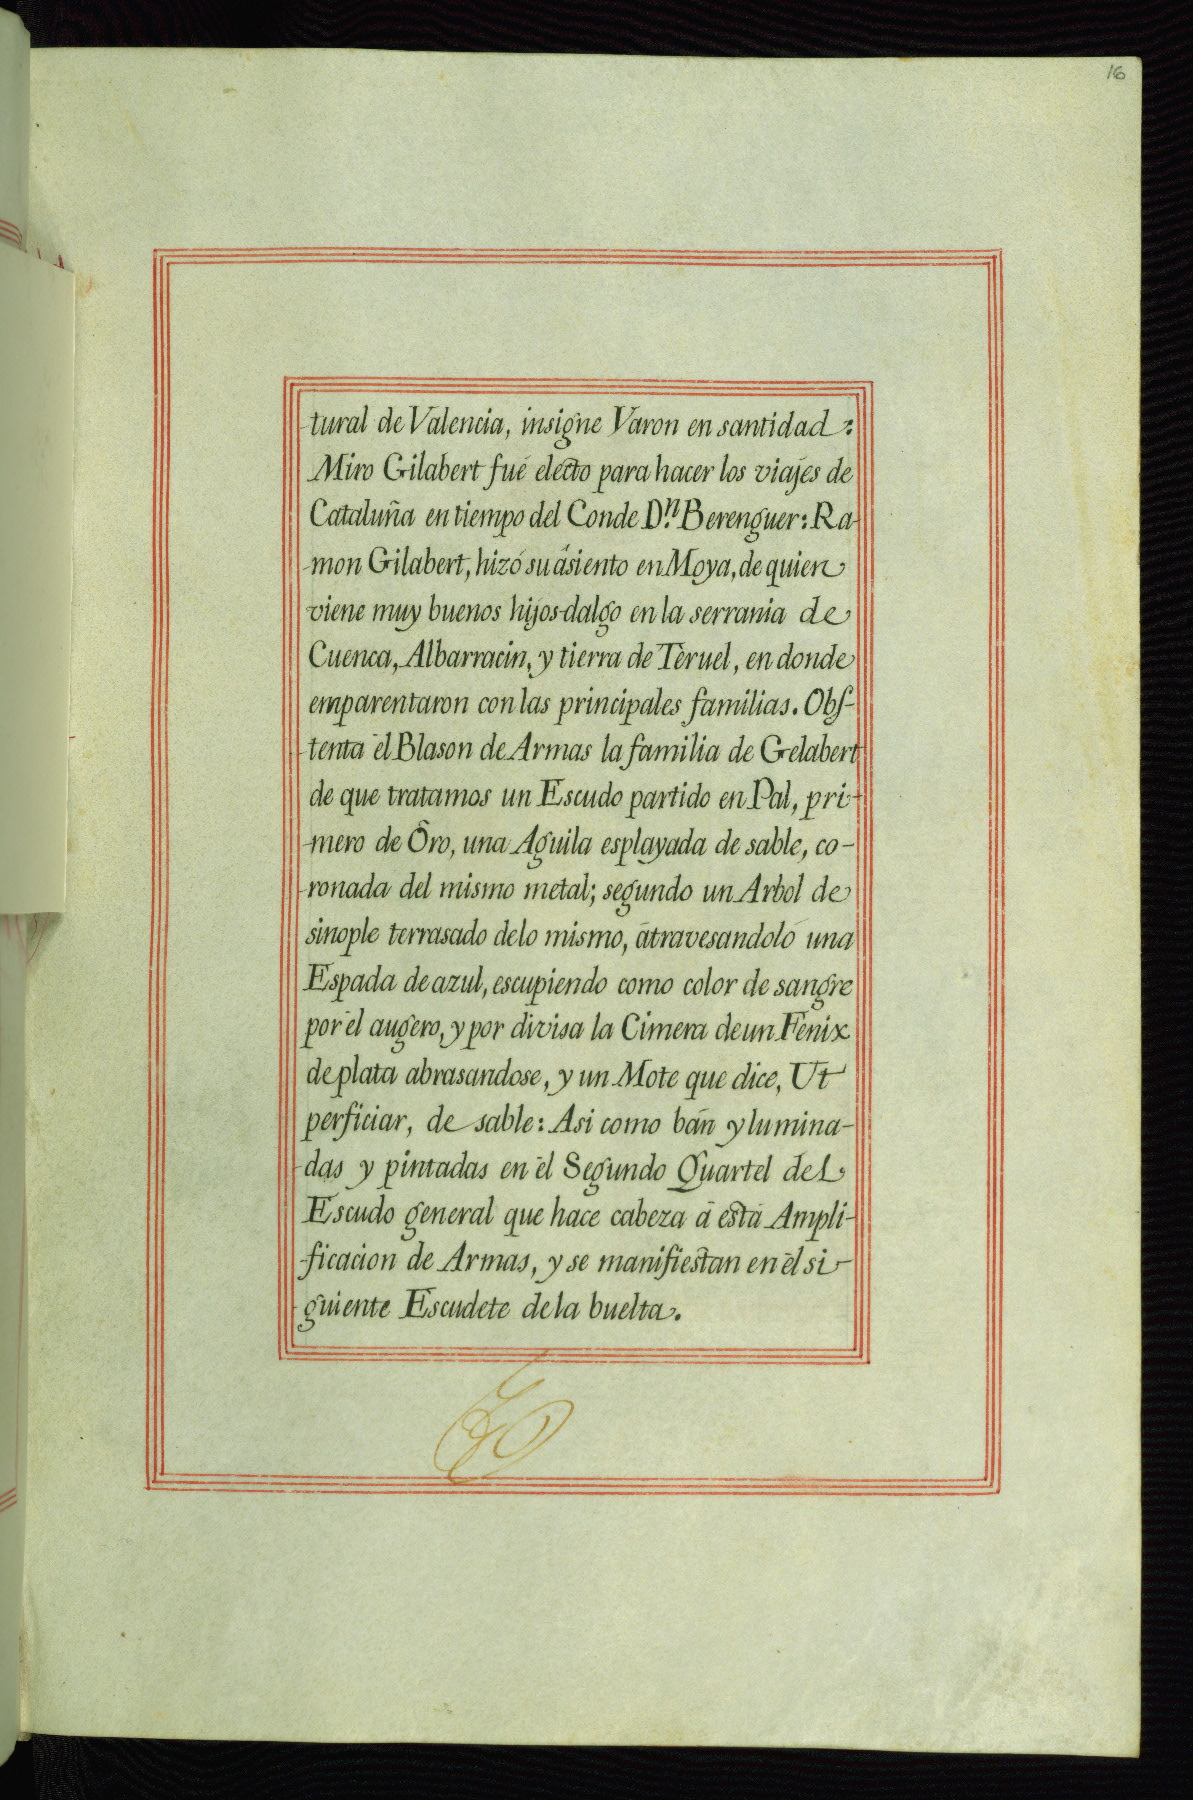 16
tural de Valencia, insigne Varon en santidad:
Miro Gilabert fué electo para hacer los viajes de
Cataluña en tiempo del Conde D.ⁿ Berenguer: Ra-
mon Gilabert, hizó su ásiento en Moya, de quien
viene muy buenos hijos-dalgo en la serrania de
Cuenca, Albarracin, y tierra de Tèruel, en donde
emparentaron con las principales familias. Obs-
tenta èl Blason de Armas la familia de Gelabert
de que tratamos un Escudo partido en Pal, pri-
mero de Ôro, una Aguila esplayada de sable, co-
ronada del mismo metal; segundo un Arbol de
sinople terrasado delo mismo, átravesandoló una
Espada de azul, escupiendo como color de sangre
por él augero, y por divisa la Cimera de un Fénix
de plata abrasandose, y un Mote que dice, Ut
perficiar, de sable: Asi como bán ylumina-
das y pintadas en él Segundo Quartel del
Escudo general que hace cabeza á está Ampli-
ficacion de Armas, y se manifiestan en él si-
guiente Escudete de la buelta.